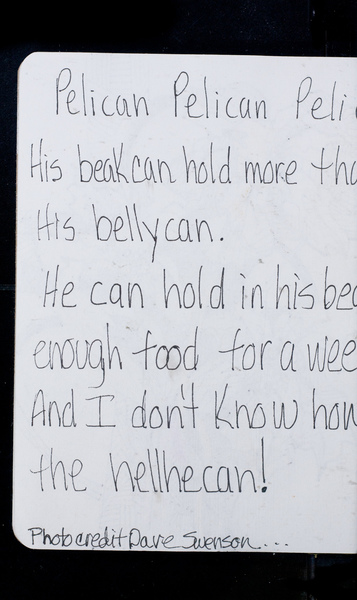 Pelican Pelican Peli
His beak can hold more tha
His bellycan.
He can hold in his bea
enough food for a wee
And I don't know how
the hellhecan!
Photo credit Dave Swenson...